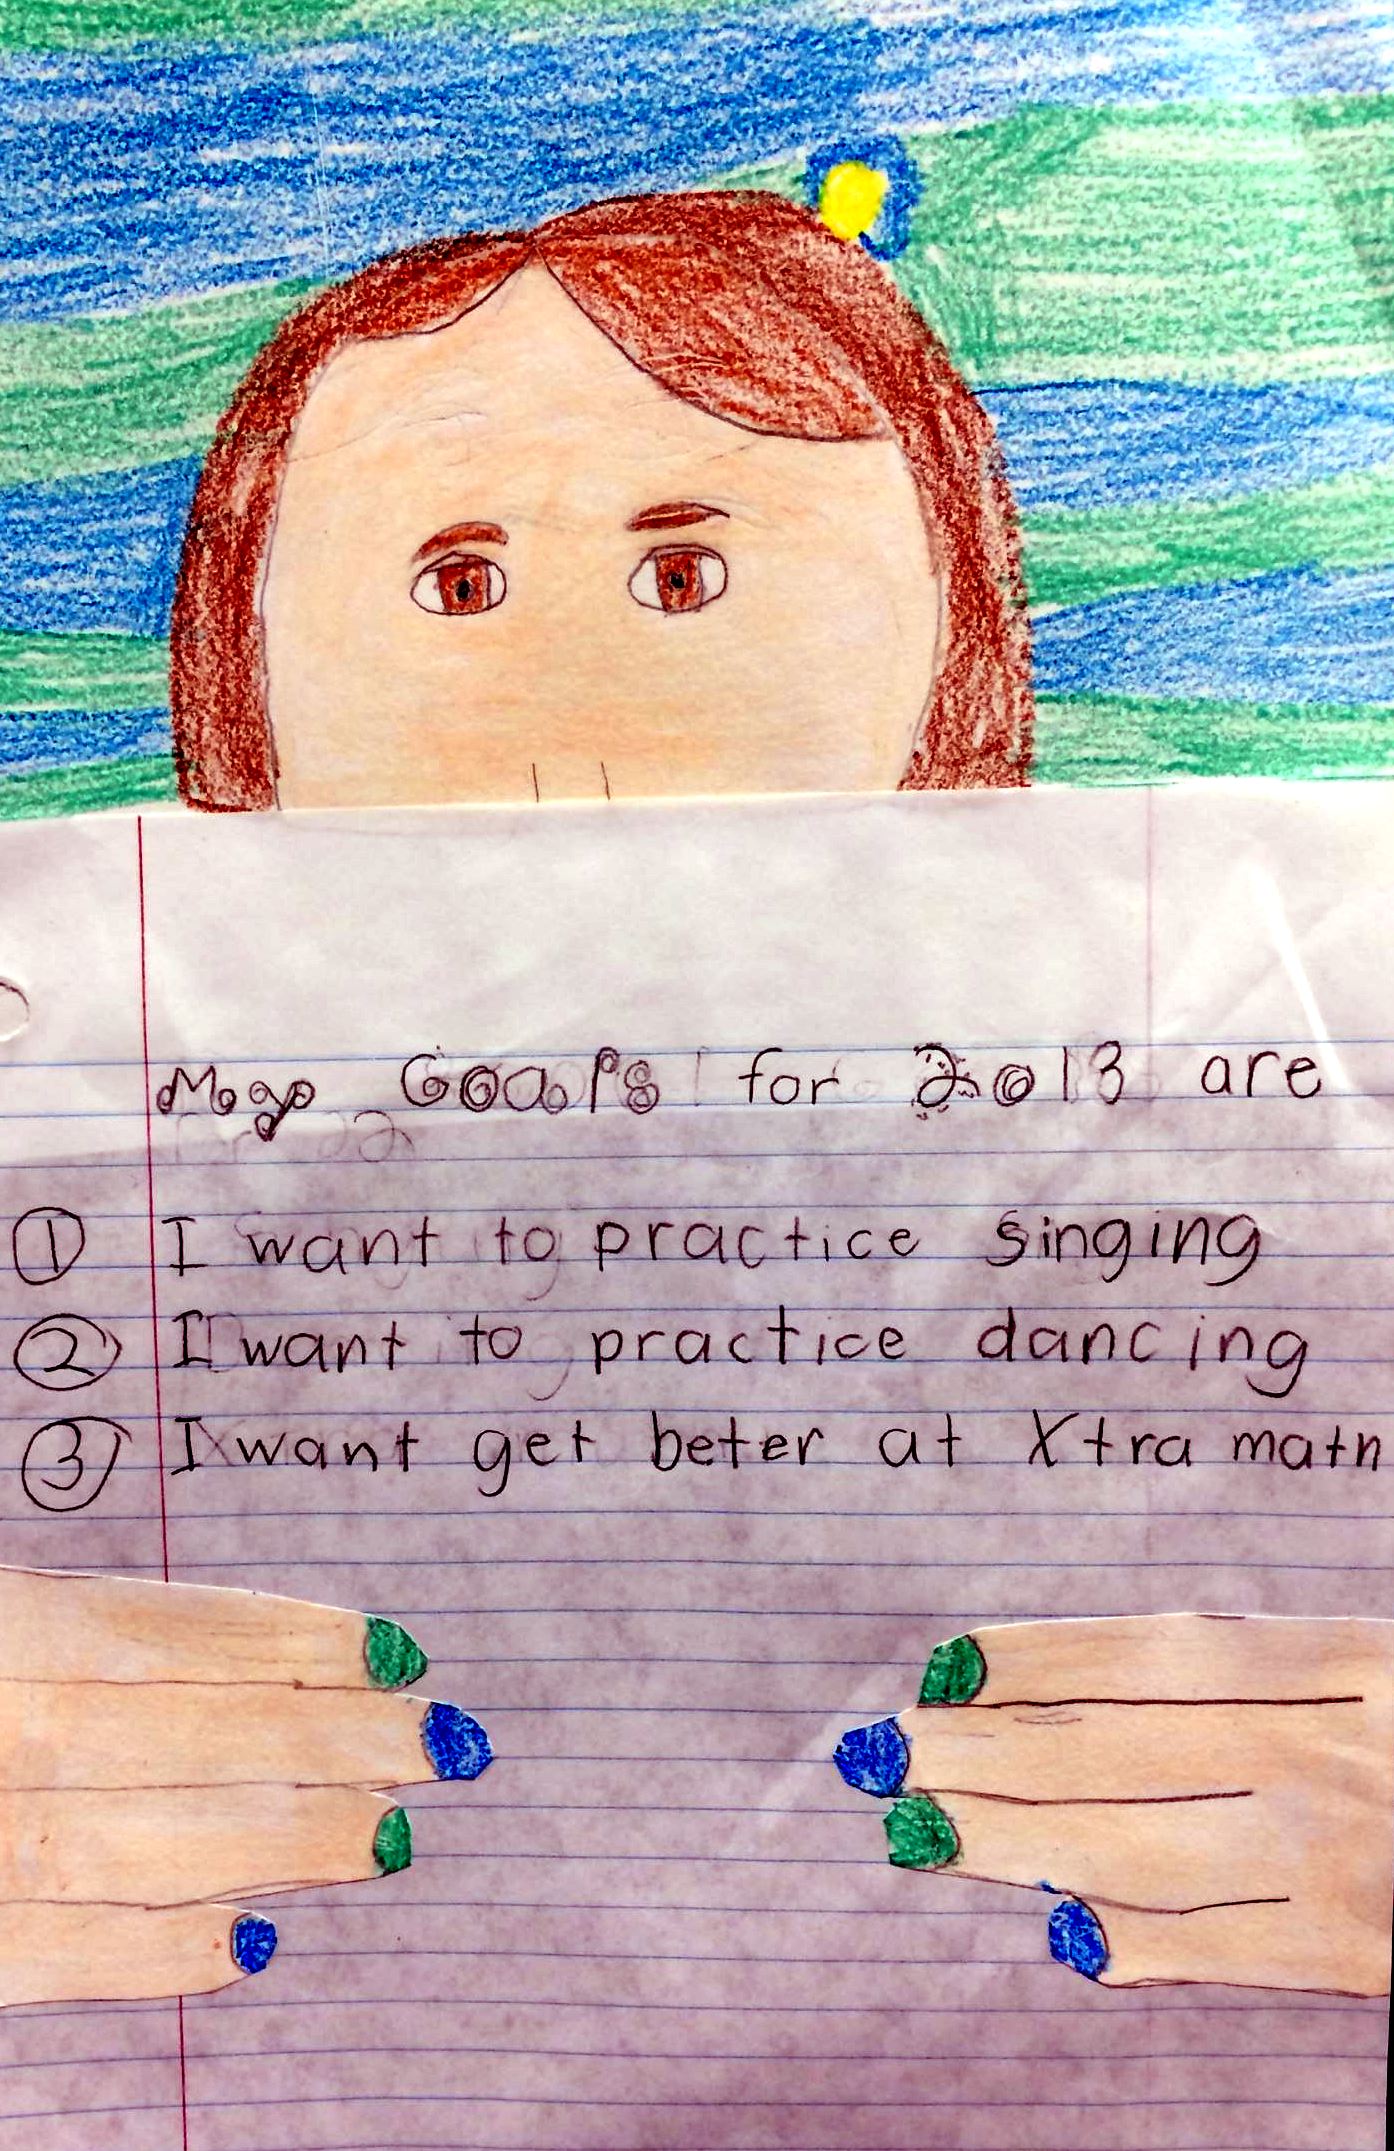 My Goals for 2013 are
① I want to practice singing
② I want to practice dancing
③ I want get beter at Xtra math